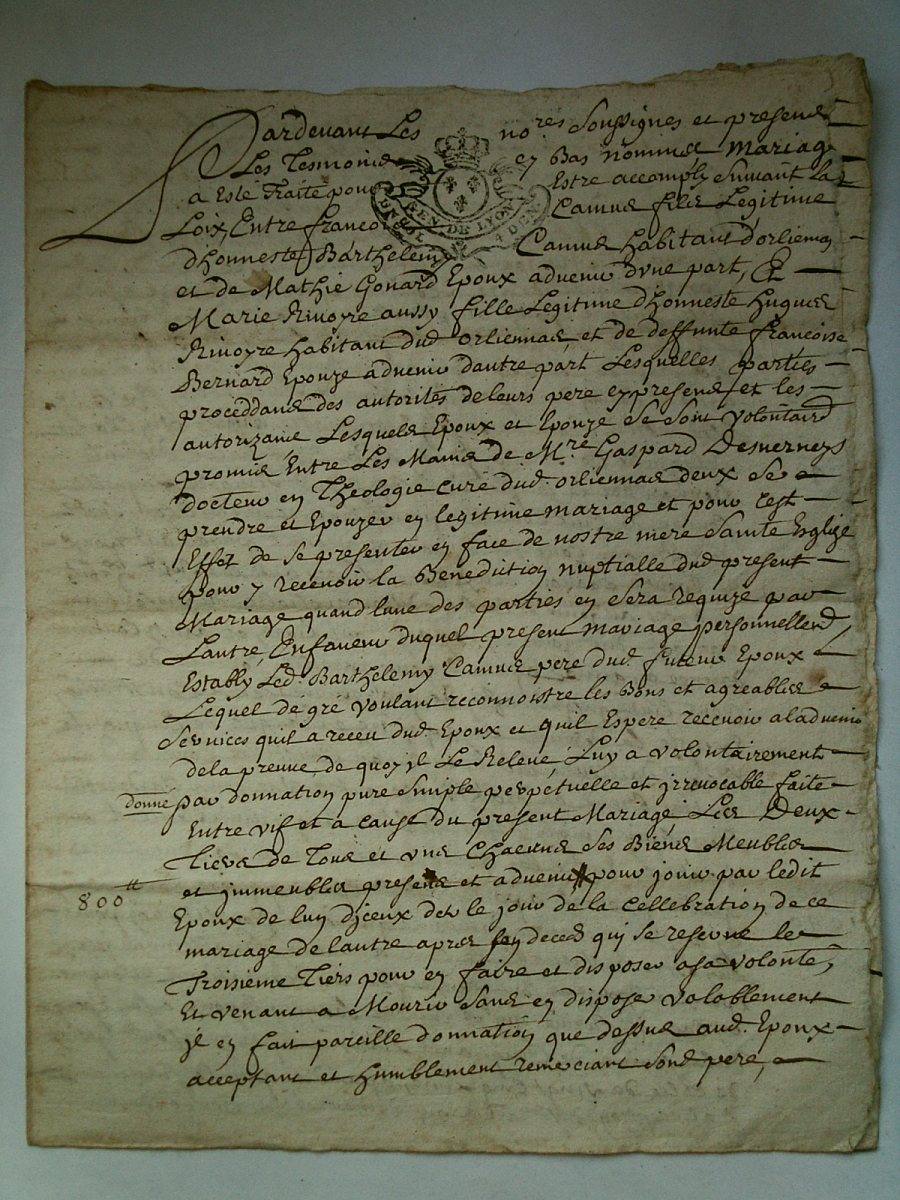 Pardevant Les no.res Soussignes et presens
Les Tesmoins en Bas nommes mariage
a Este Traité pour Estre accomply Suivant la
Loix, Entre francois Camus fils Legitime
d'honneste Barthelemy Camus habitant d'orlienas
et de Mathie Gonard Epoux advenir d'une part, Et
Marie Rivoyre aussy fille Legitime d'honneste hugues
Rivoyre habitant dud. orliennas et de deffunte francoise
Bernard Epouze advenir dautre part Lesquelles parties
proceddans des autorités de leurs pere cy presens et les
autorizans Lesquels Epoux et Epouze se sont volontaire.t
promis Entre Les Mains de M.re Gaspard Desverneys
docteur en Theologie curé dud. orliennas deux se
prendre et Epouzer en legitime mariage et pour cest
Effet de se presenter en face de nostre mere Sainte Esglize
pour y recevoir la Benediction nuptialle dud. present
Mariage quand lune des parties en sera requize par
Lautre, Enfaveur duquel present mariage personnellem.t
Estably, Led. Barthelemy Camus pere dud. futeur Epoux
Lequel de gré voulant reconnoistre les Bons et agreables
Services quil a receu dud. Epoux et quil Espere recevoir aladvenir
dela preuve de quoy il Le Relevé, Luy a volontairement
donné par donnation pure simple perpetuelle et irrevocable faite
Entre vif et a cause du present Mariage, Les Deux
Tiers de Tous et uns chacuns ses Biens Meubles
et immeubles presens et advenir pour jouir par ledit
800 tt
Epoux de lun diceux des le jour de la cellebration de ce
mariage de lautre apres son deces qui se reserve le
Troisieme Tiers pour en faire et disposer asa volonté,
Et venant a Mourir Sans en dispose valablement
il en fait pareille donnation que dessus aud. Epoux
acceptant et humblement remerciant Sond. pere,
GEN DE LYON